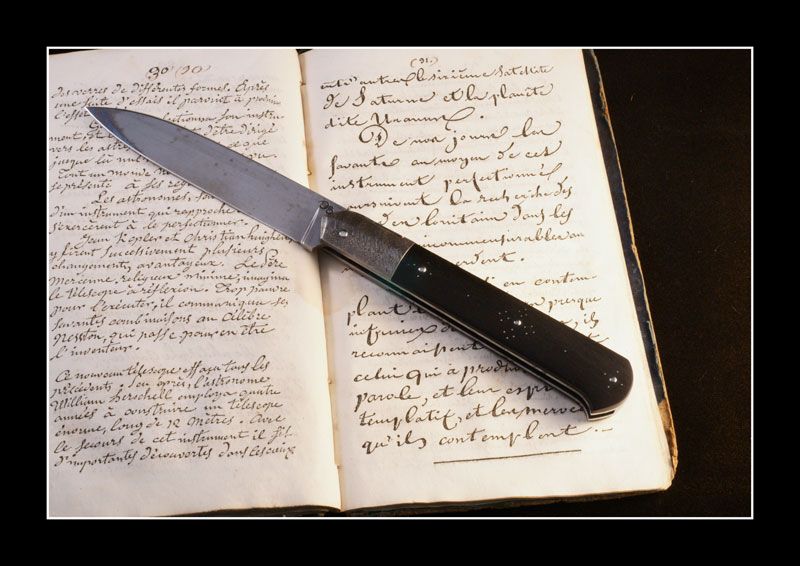 30 (30)
des verres de différentes formes. Après
une suite d'essais il parvint à produire
l'effet
instru-
ment et dirigé
vers les astres que
jusque là
Tout un monde
se présente à ses
Les astronomes,
d'un instrument qui rapproche
s'exercèrent à le perfectionner.
Jean Kepler et Christian huighens
y firent successivement plusieurs
changements avantageux. Le Père
Mercenne, religieux minime, imagina
le télescope à réflexion. Trop pauvre
pour l'exécuter, il communique ses
savantes combinaisons au célèbre
Newton, qui passe pour en être
l'inventeur.
Ce nouveau télescope effaça tous les
précédents. Peu après, l'astronome
William herschell employa quatre
années à construire un télescope
énorme, long de 12 mètres. Avec
le secours de cet instrument il fit
d'importantes découvertes dans les cieux
(31.)
entr'autres le sixième satellite
de Saturne et la planète
dite Uranus.
De nos jours les
savants au moyen de cet
instrument perfectionné
poursuivent la recherche des
lointain dans les
incommensurables
en contem-
plant presque
infinie ils
reconnaissent
celui qui a produit
parole, et leur
templatif, et les
qu'ils contemplent.